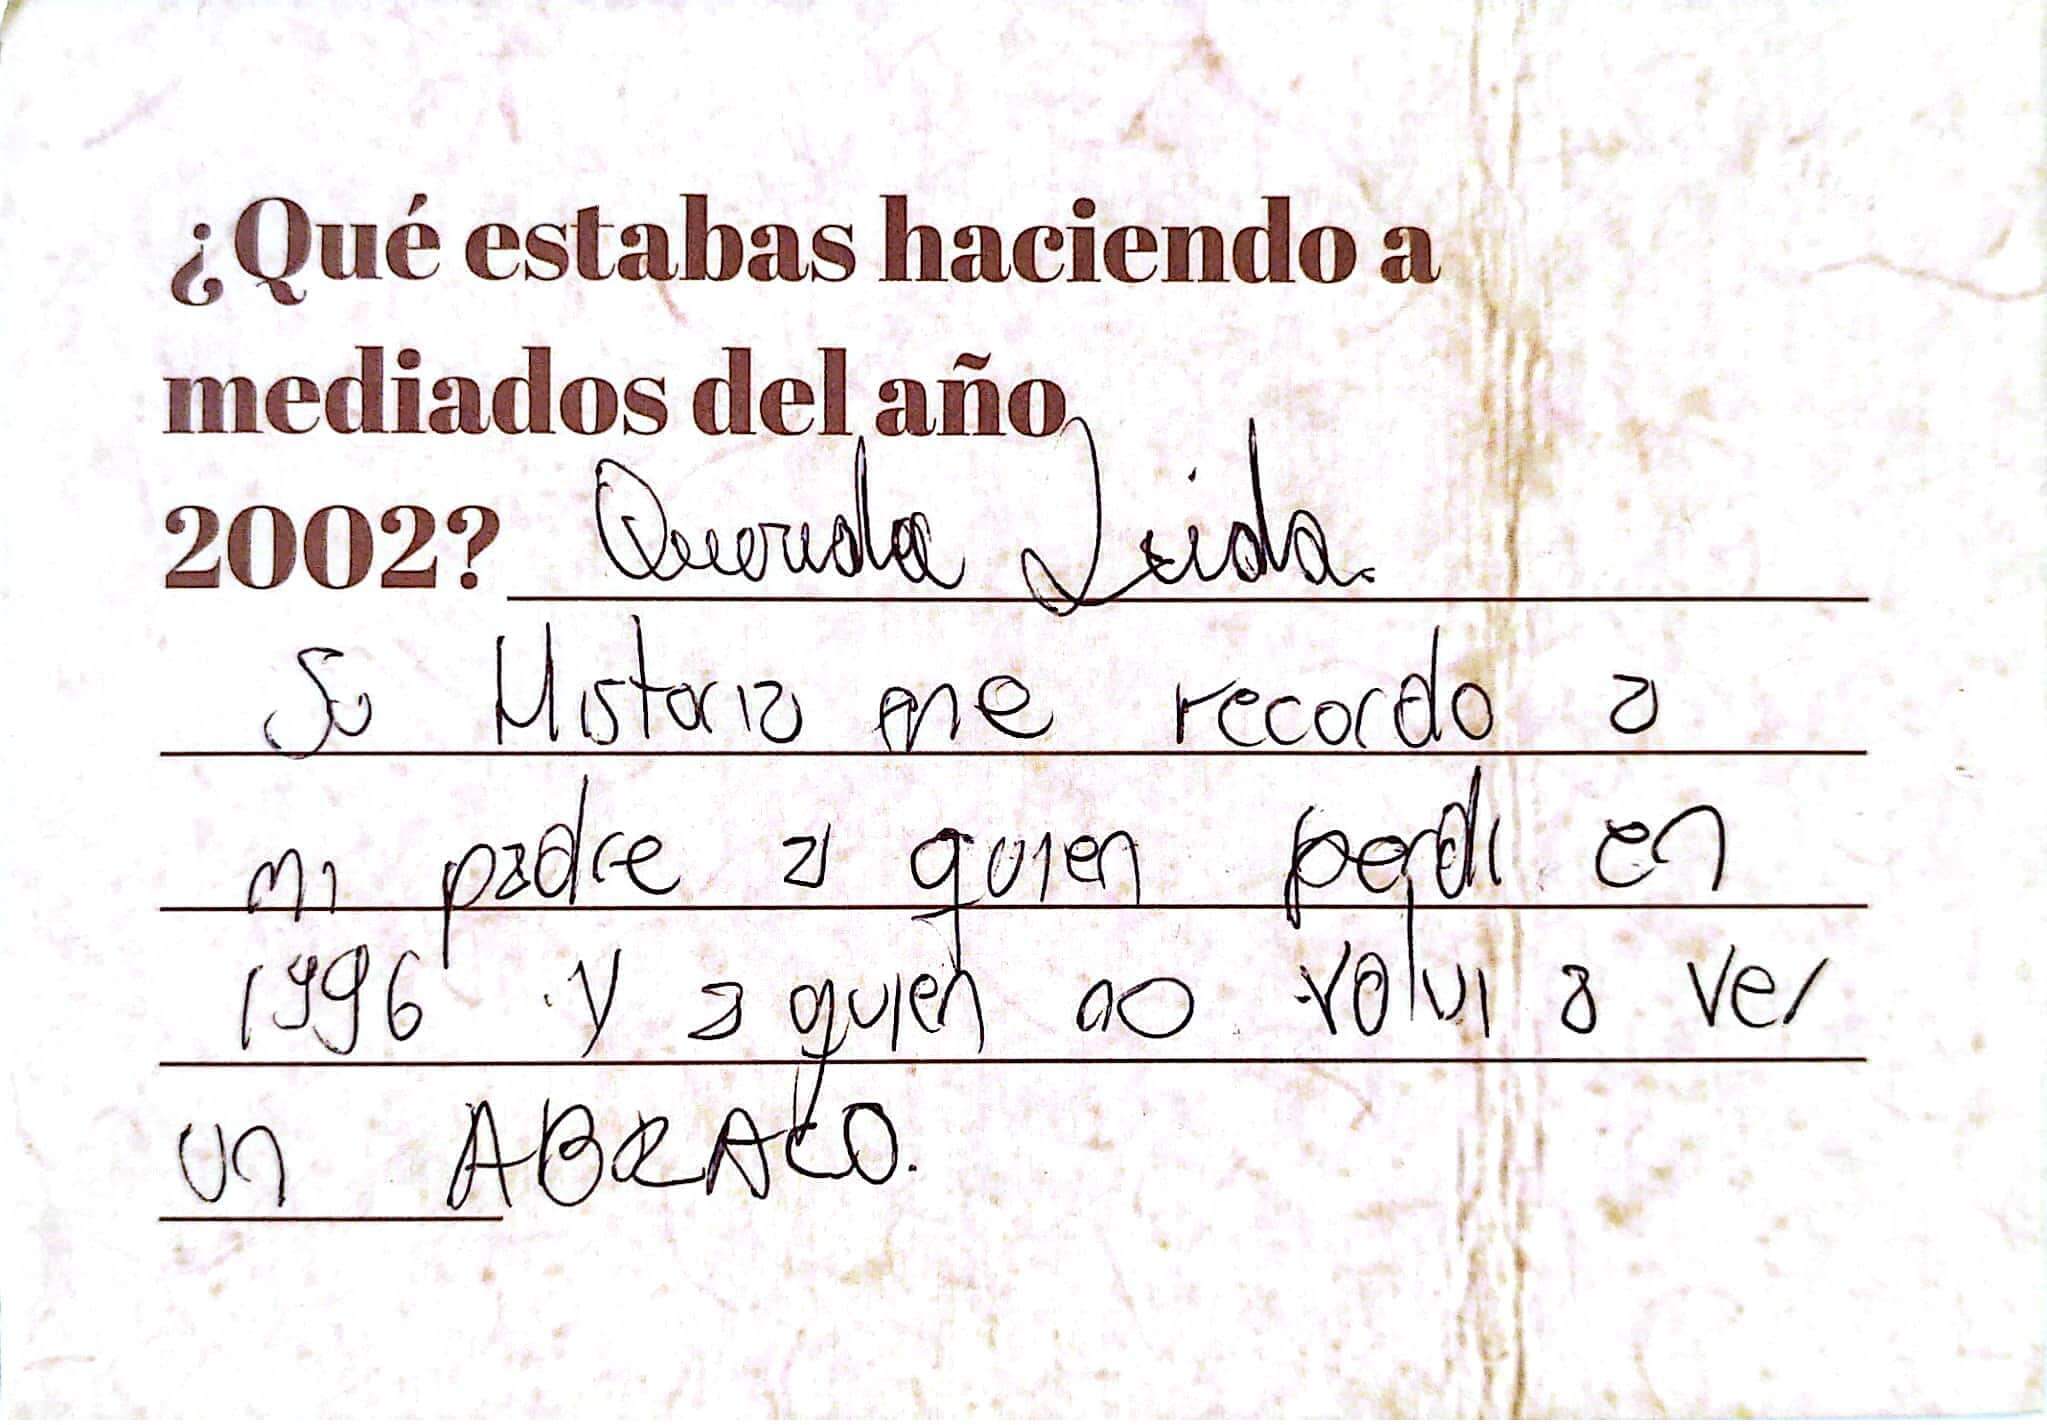 ¿Qué estabas haciendo a
mediados del año
2002? Querida Leida.
Su Historia me recordo a
mi padre a quien perdi en
1996 y a quien no volvi a ver
un ABRAZO.